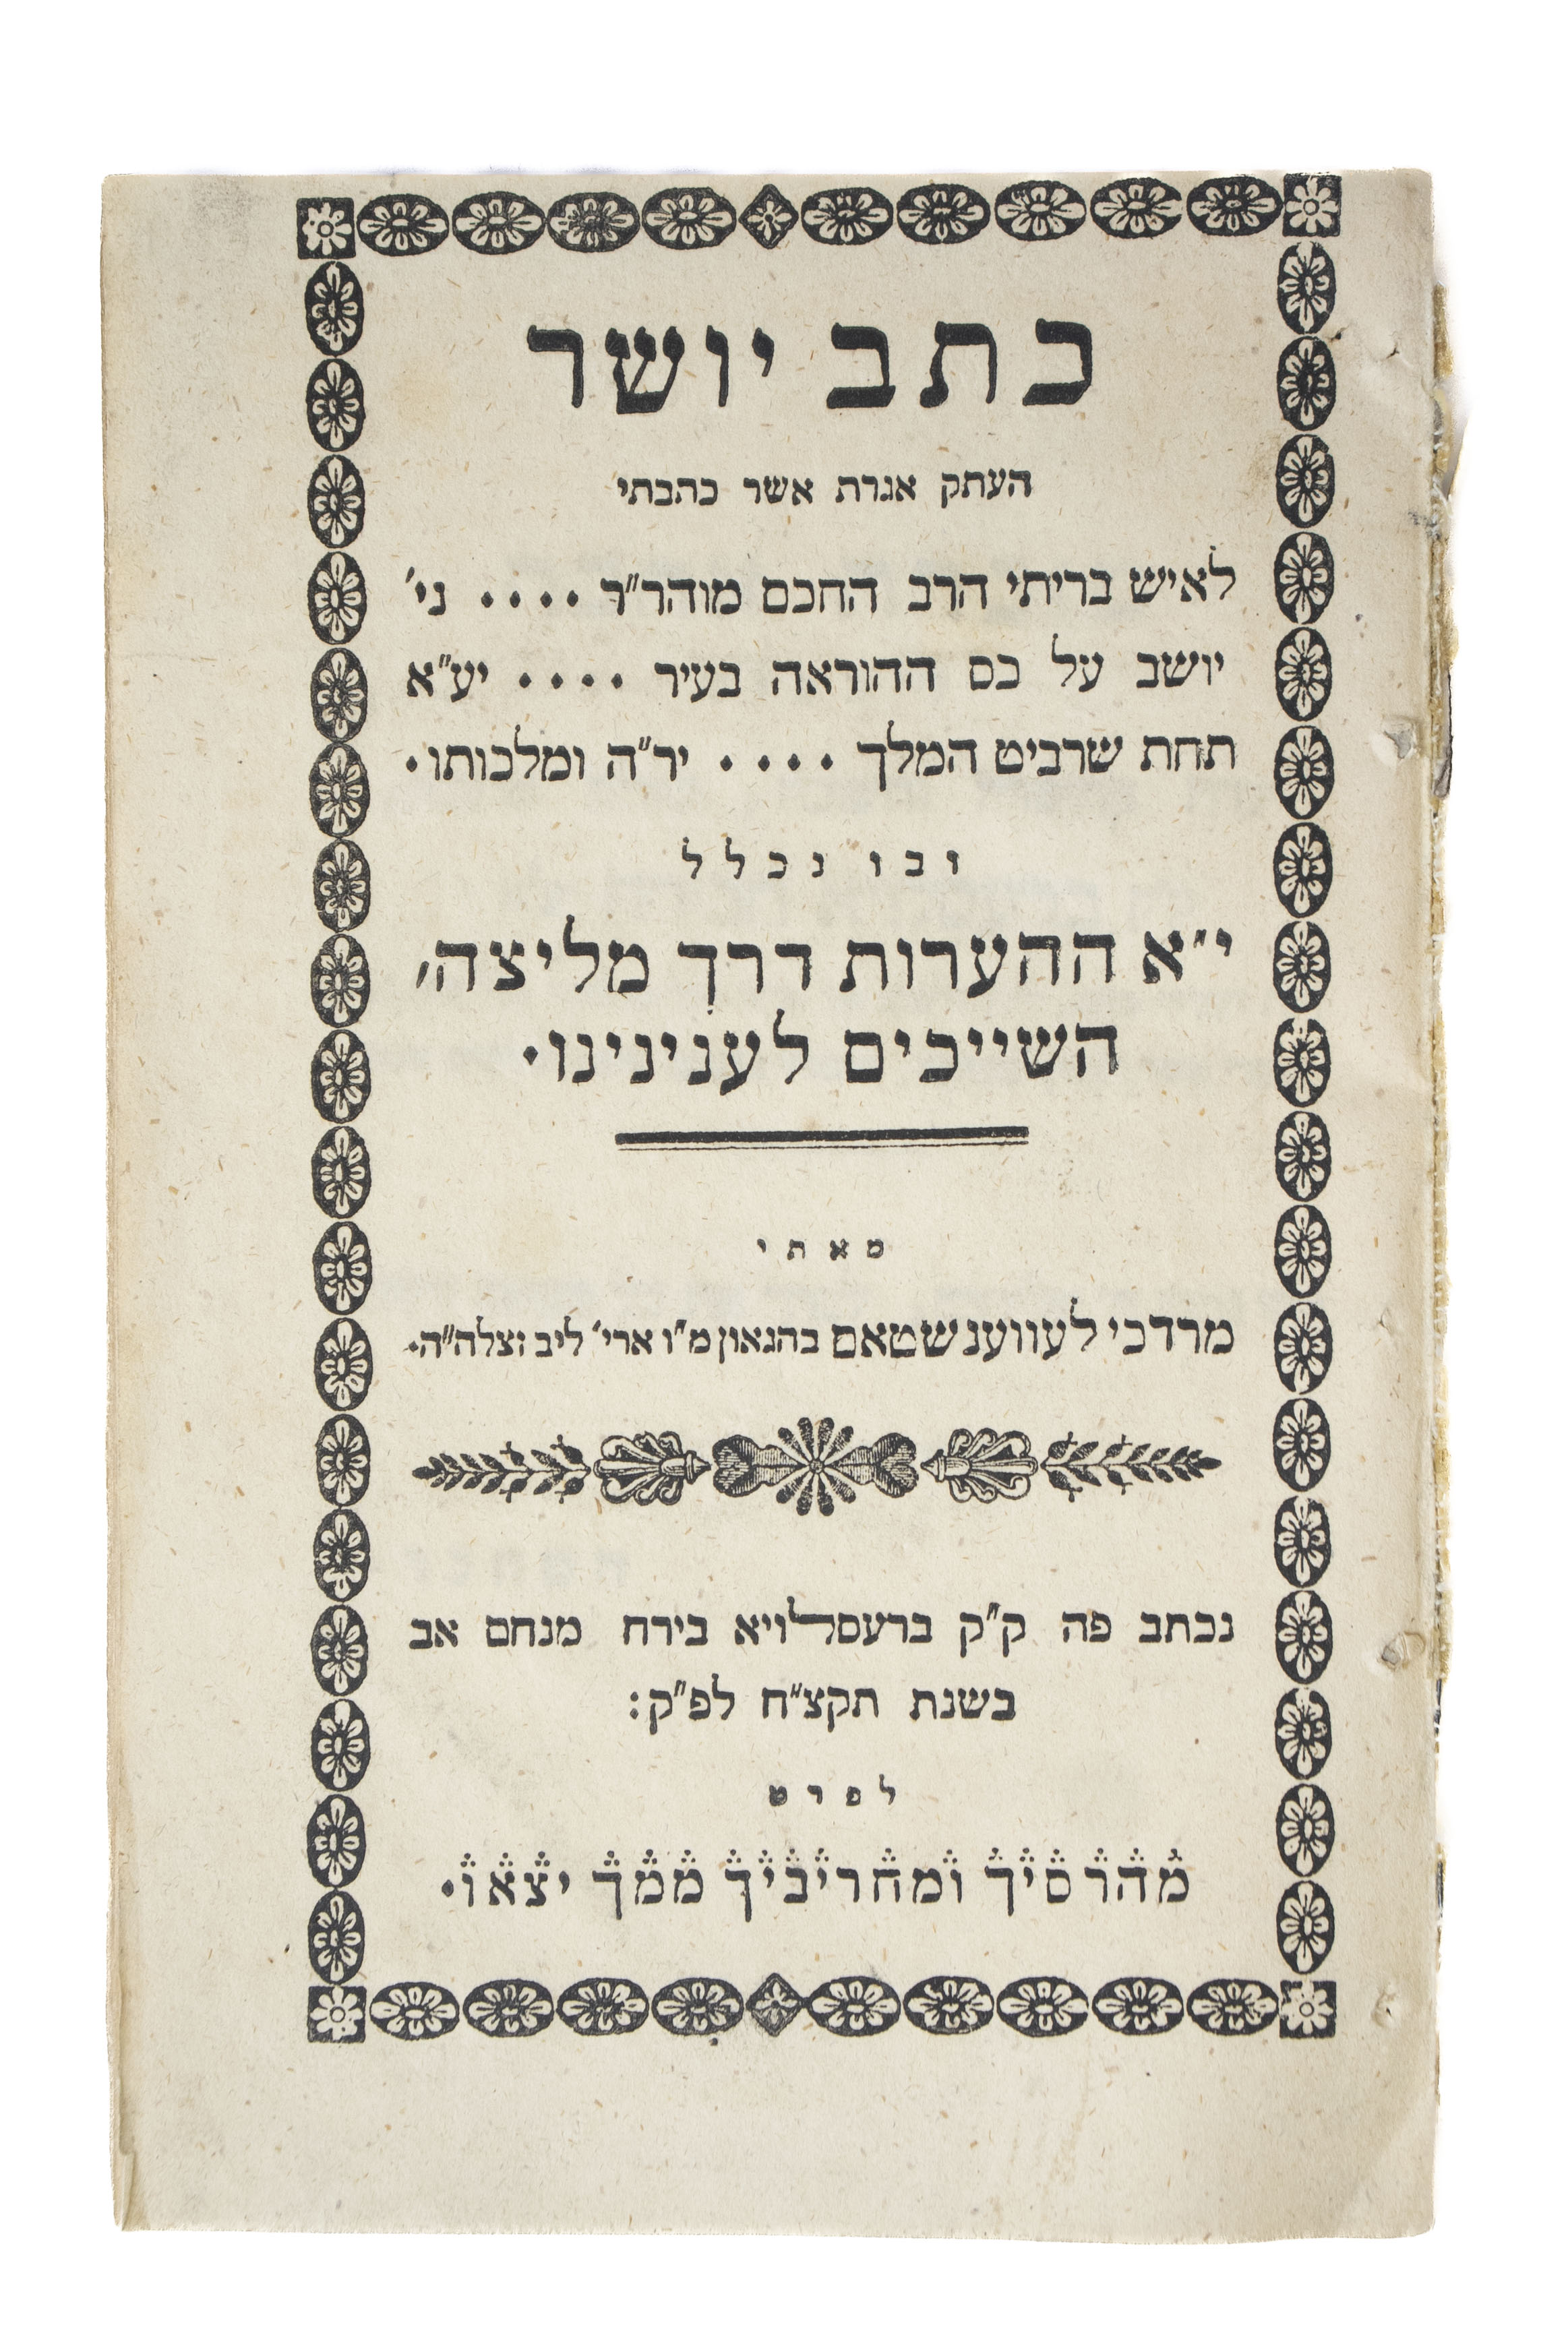 כתב יושר
העתק אגרת אשר כתבתי
לאיש בריתי הרב החכם מוהר״ר • • • • ני׳
יושב על כס ההוראה בעיר • • • • יע״א
תחת שרביט המלך • • • • יר״ה ומלכותו •
ובו נכלל
י״א ההערות דרך מליצה,
השייכים לענינינו •
מאתי
מרדכי לעווענשטאם בהגאון מ״ו ארי׳ ליב זצלה״ה •
נכתב פה ק״ק ברעסלויא בירח מנחם אב
בשנת תקצ״ח לפ״ק:
לפרט
מהרסיך ומחריביך ממך יצאו •